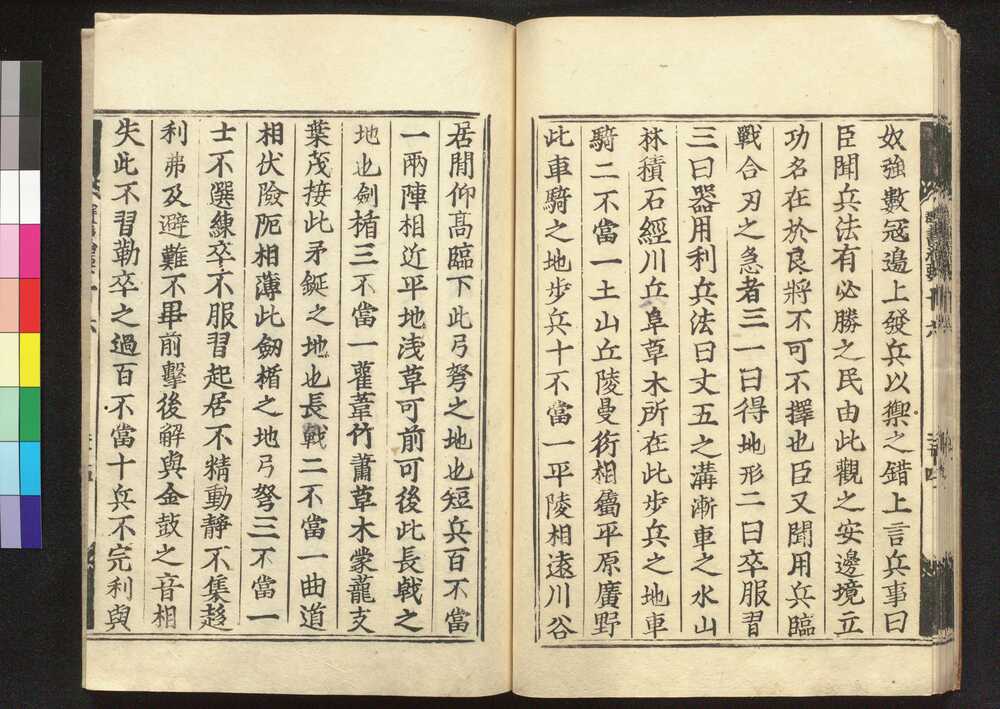 奴強數冦邉上發兵以禦之錯上言兵事曰
臣聞兵法有必勝之民由此觀之安邊境立
功名在於良將不可不擇也臣又聞用兵臨
戰合刃之急者三一曰得地形二曰卒服習
三曰器用利兵法曰丈五之溝漸車之水山
林積石經川丘阜草木所在此步兵之地車
騎二不當一土山丘陵曼衍相屬平原廣野
此車騎之地步兵十不當一平陵相遠川谷
居間仰高臨下此弓弩之地也短兵百不當
一兩陣相近平地浅草可前可後此長戟之
地也劍楯三不當一雚葦竹蕭草木蒙蘢支
葉茂接此矛鋋之地也長戟二不當一曲道
相伏險阨相薄此劒楯之地弓弩三不當一
士不選練卒不服習起居不精動静不集趍
利弗及避難不畢前擊後解與金鼓之音相
失此不習勒卒之過百不當十兵不完利與